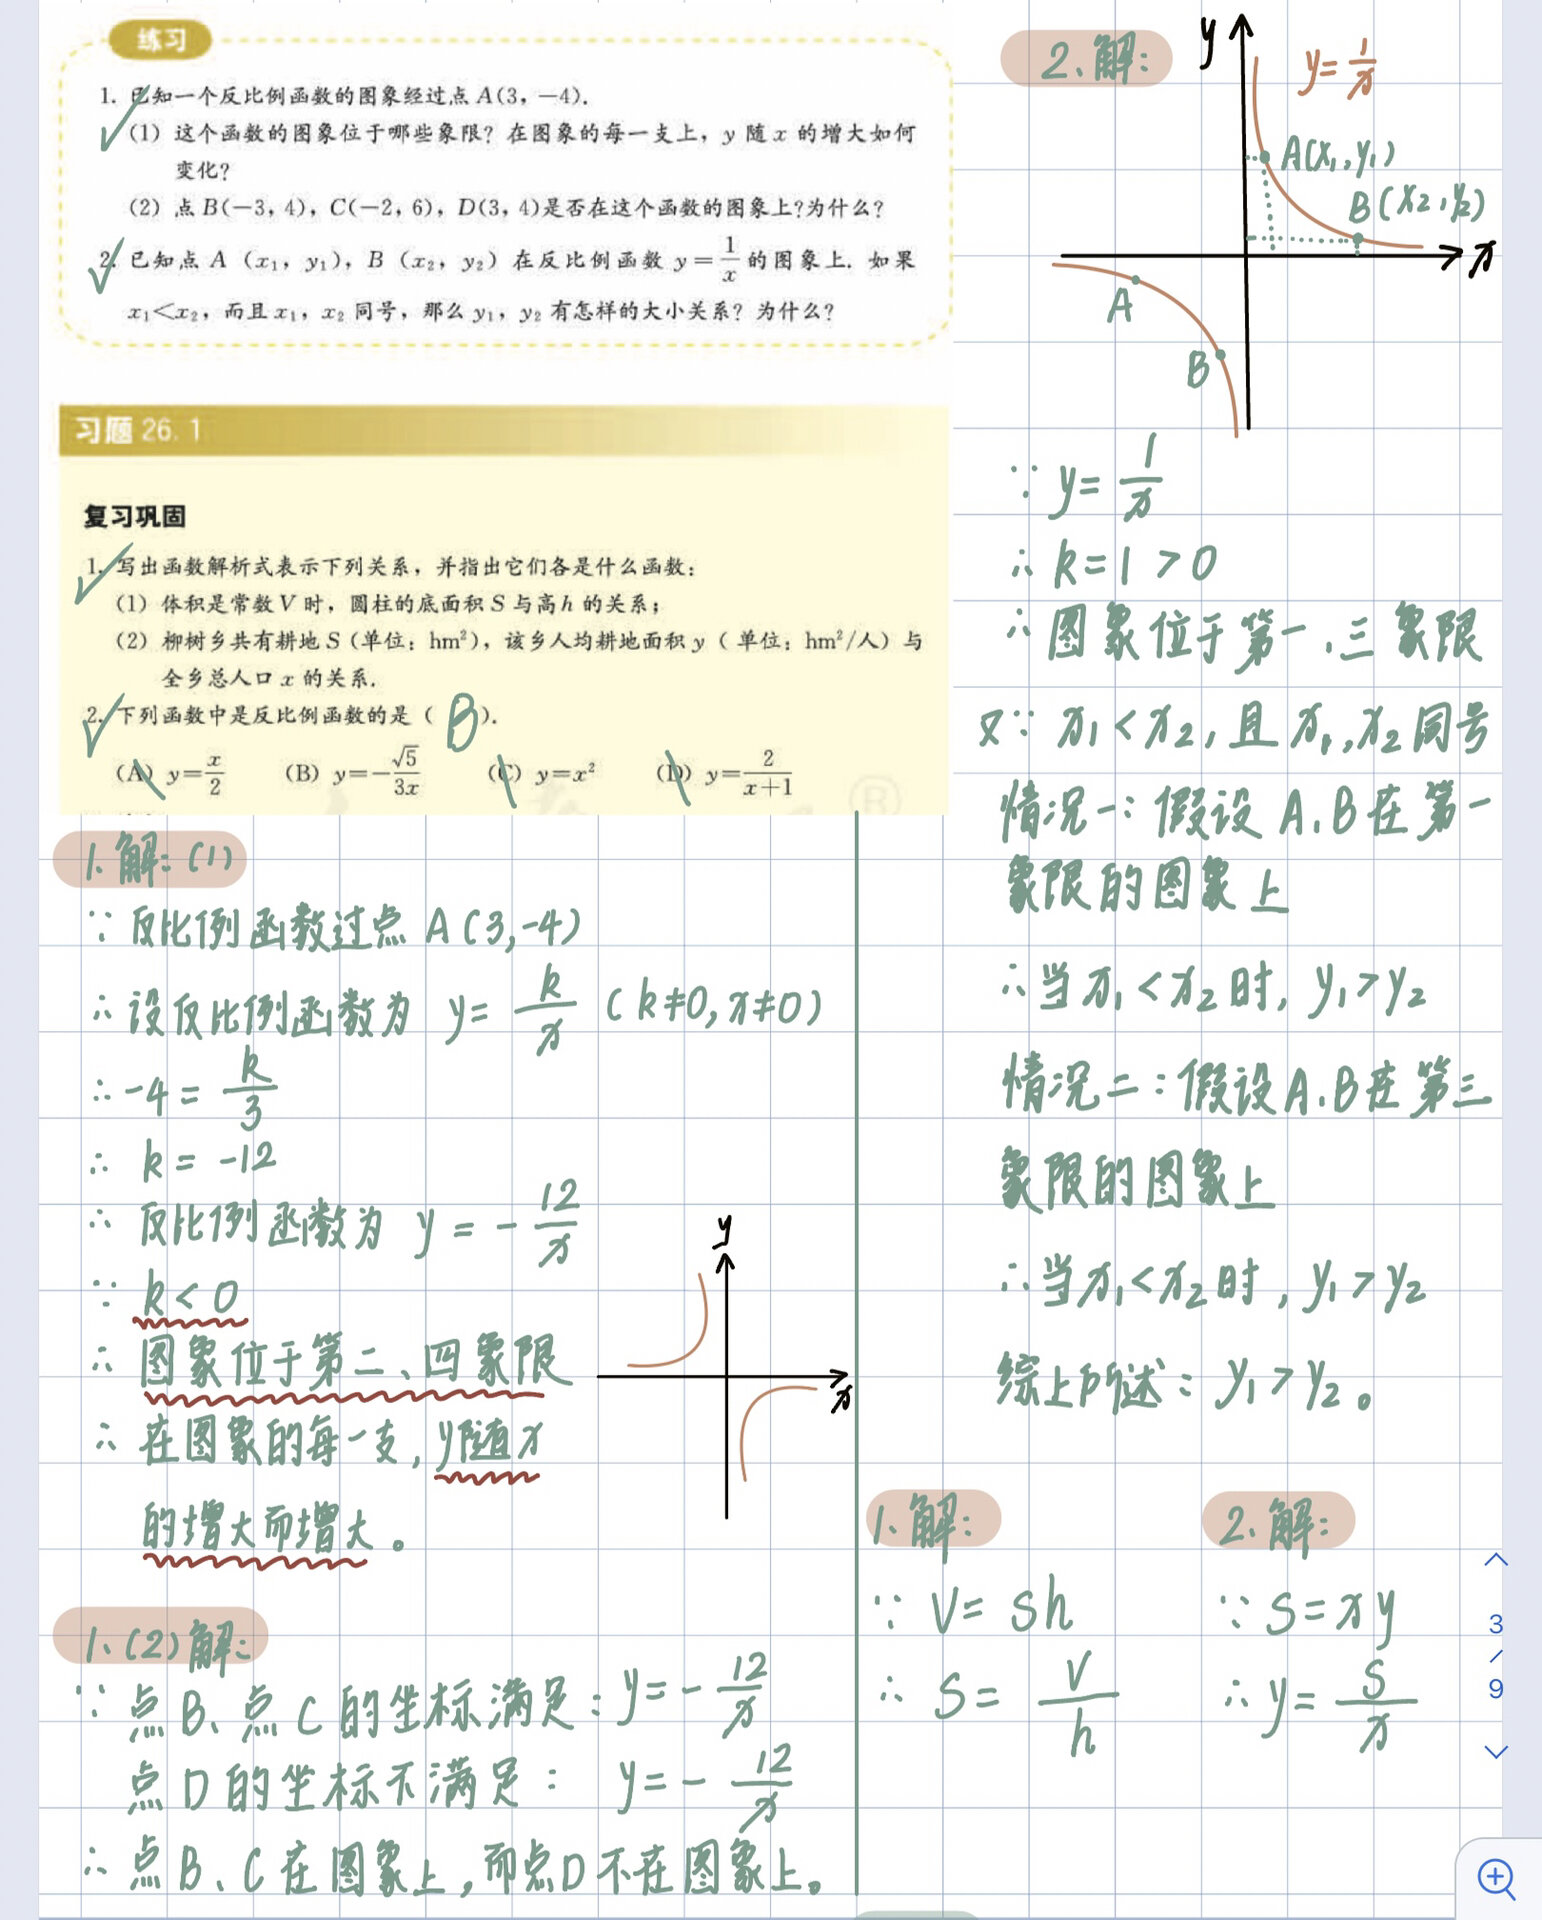 练习
1. 已知一个反比例函数的图象经过点 A(3, −4).
(1) 这个函数的图象位于哪些象限? 在图象的每一支上, y 随 x 的增大如何
变化?
(2) 点 B(−3, 4), C(−2, 6), D(3, 4)是否在这个函数的图象上?为什么?
2. 已知点 A (x₁, y₁), B (x₂, y₂) 在反比例函数 y=1/x 的图象上. 如果
x₁<x₂, 而且 x₁, x₂ 同号, 那么 y₁, y₂ 有怎样的大小关系? 为什么?
习题 26.1
复习巩固
1. 写出函数解析式表示下列关系, 并指出它们各是什么函数:
(1) 体积是常数 V 时, 圆柱的底面积 S 与高 h 的关系;
(2) 柳树乡共有耕地 S (单位: hm²), 该乡人均耕地面积 y ( 单位: hm²/人) 与
全乡总人口 x 的关系.
2. 下列函数中是反比例函数的是 ( B ).
(A) y=x/2 (B) y=−√5/3x (C) y=x² (D) y=2/(x+1)
®
1.解:(1)
∵ 反比例函数过点 A(3,-4)
∴ 设反比例函数为 y= k/x (k≠0,x≠0)
∴ -4 = k/3
∴ k = -12
∴ 反比例函数为 y = - 12/x
∵ k < 0
∴ 图象位于第二、四象限
∴ 在图象的每一支,y随x
的增大而增大。
y
x
1.(2)解:
∵ 点B、点C的坐标满足: y= - 12/x
点D的坐标不满足: y= - 12/x
∴ 点B、C在图象上,而点D不在图象上。
2.解:
y
y= 1/x
A(x₁,y₁)
B(x₂,y₂)
x
A
B
∵ y= 1/x
∴ k=1 > 0
∴ 图象位于第一、三象限
又∵ x₁<x₂,且x₁,x₂同号
情况一:假设A、B在第一
象限的图象上
∴当x₁<x₂时, y₁>y₂
情况二:假设A、B在第三
象限的图象上
∴当x₁<x₂时, y₁>y₂
综上所述: y₁>y₂。
1.解:
∵ V= Sh
∴ S= V/h
2.解:
∵ S=xy
∴ y= S/x
3
/
9